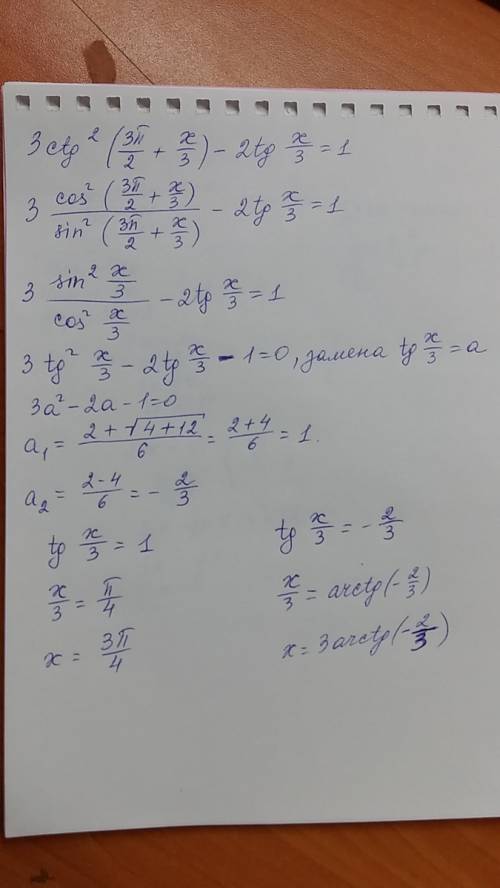 3ctg² (3π/2 + x/3) - 2tg x/3 = 1
3 cos² (3π/2 + x/3) / sin² (3π/2 + x/3) - 2tg x/3 = 1
3 sin² x/3 / cos² x/3 - 2tg x/3 = 1
3 tg² x/3 - 2tg x/3 - 1 = 0, замена tg x/3 = a
3a² - 2a - 1 = 0
a₁ = (2 + √(4+12)) / 6 = (2+4)/6 = 1.
a₂ = (2-4)/6 = - 2/3
tg x/3 = 1
x/3 = π/4
x = 3π/4
tg x/3 = - 2/3
x/3 = arctg(- 2/3)
x = 3arctg(- 2/3)